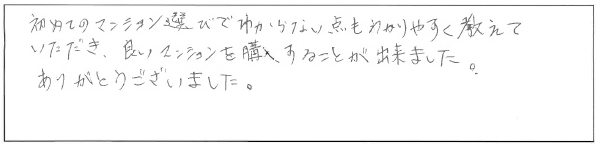 初めてのマンション選びでわからない点もわかりやすく教えて
いただき、良いマンションを購入することが出来ました。
ありがとうございました。